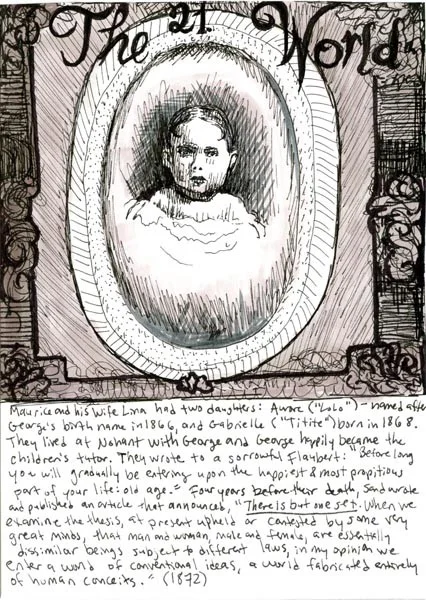 The 21. World
Maurice and his wife Lina had two daughters: Aurore ("LoLo") - named after
George's birth name in 1866, and Gabrielle ("Titite") born in 1868.
They lived at Nohant with George and George happily became the
children's tutor. They wrote to a sorrowful Flaubert: "Before long
you will gradually be entering upon the happiest & most propitious
part of your life: old age." Four years before their death, Sand wrote
and published an article that announced, "There is but one sex. When we
examine the thesis, at present upheld or contested by some very
great minds, that man and woman, male and female, are essentially
dissimilar beings subject to different laws, in my opinion we
enter a world of conventional ideas, a world fabricated entirely
of human conceits." (1872)